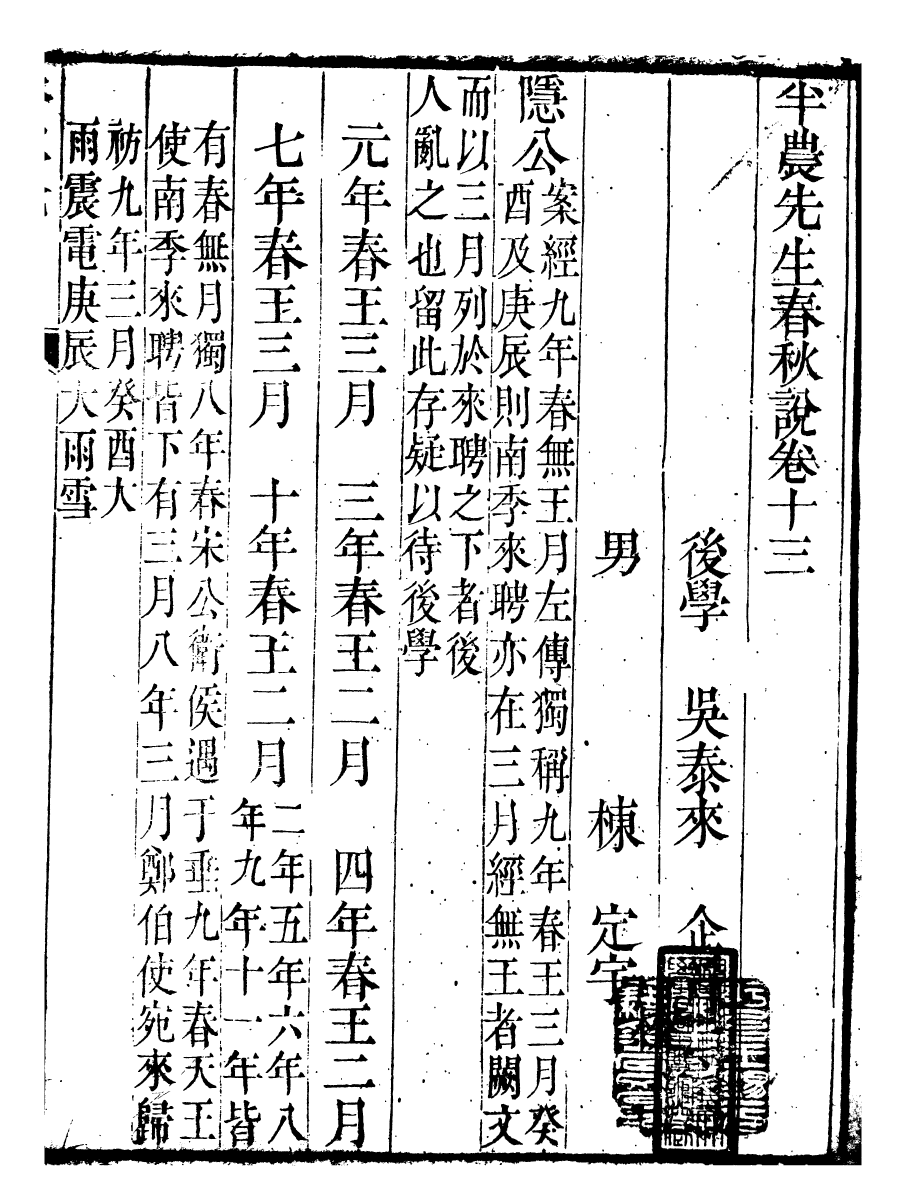 半農先生春秋說卷十三
後學　吳泰來　企
男　棟　定宇
隱公
案經九年春無王月左傳獨稱九年春王三月癸
酉及庚辰則南季來聘亦在三月經無王者闕文
而以三月列於來聘之下者後
人亂之也留此存疑以待後學
元年春王三月　三年春王二月　四年春王二月
七年春王三月　十年春王二月
二年五年六年八
年九年十一年皆
有春無月獨八年春宋公衛侯遇于垂九年春天王
使南季來聘皆下有三月八年三月鄭伯使宛來歸
祊九年三月癸酉大
雨震電庚辰大雨雪